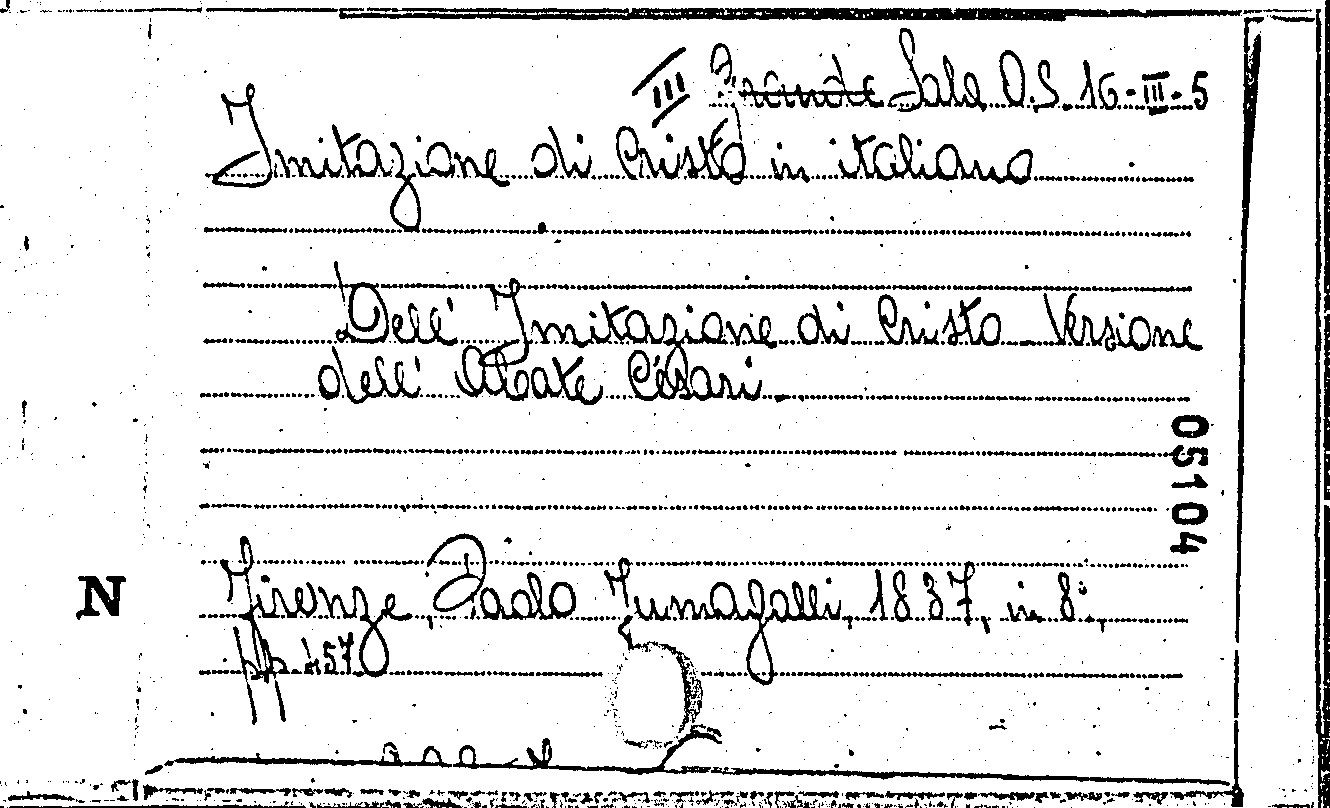 III Grande Sala O.S. 16-III-5
Imitazione di Cristo in italiano
Dell' Imitazione di Cristo Versione
dell' Abate Cesari.
05104
N
Firenze, Paolo Fumagalli, 1837, in 8°,
pp. 457